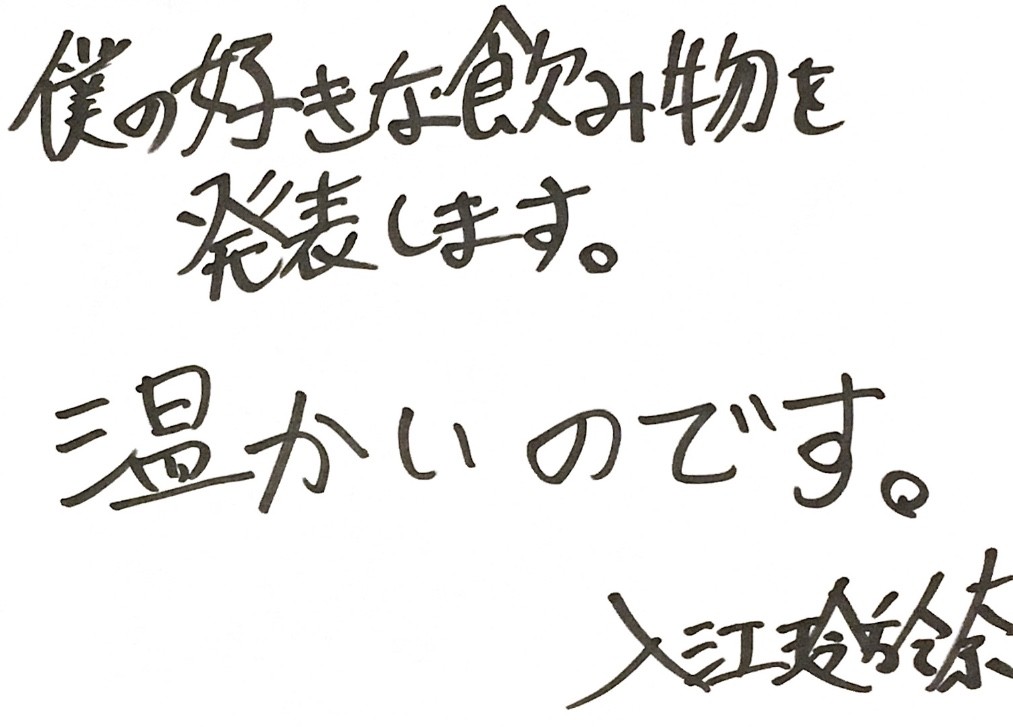 僕の好きな飲み物を
発表します。
温かいのです。
入江玲於奈